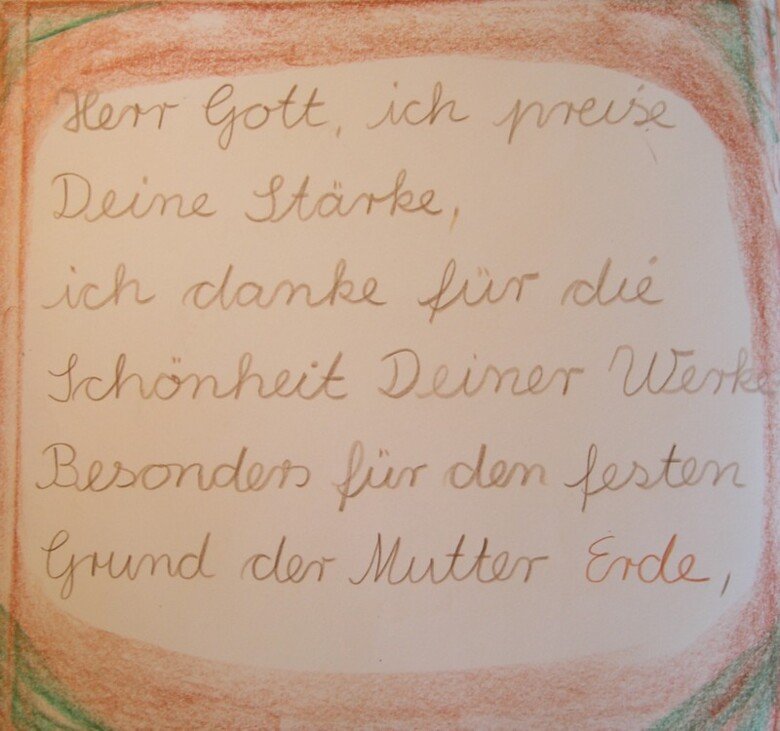 Herr Gott, ich preise
Deine Stärke,
ich danke für die
Schönheit Deiner Werke
Besonders für den festen
Grund der Mutter Erde,